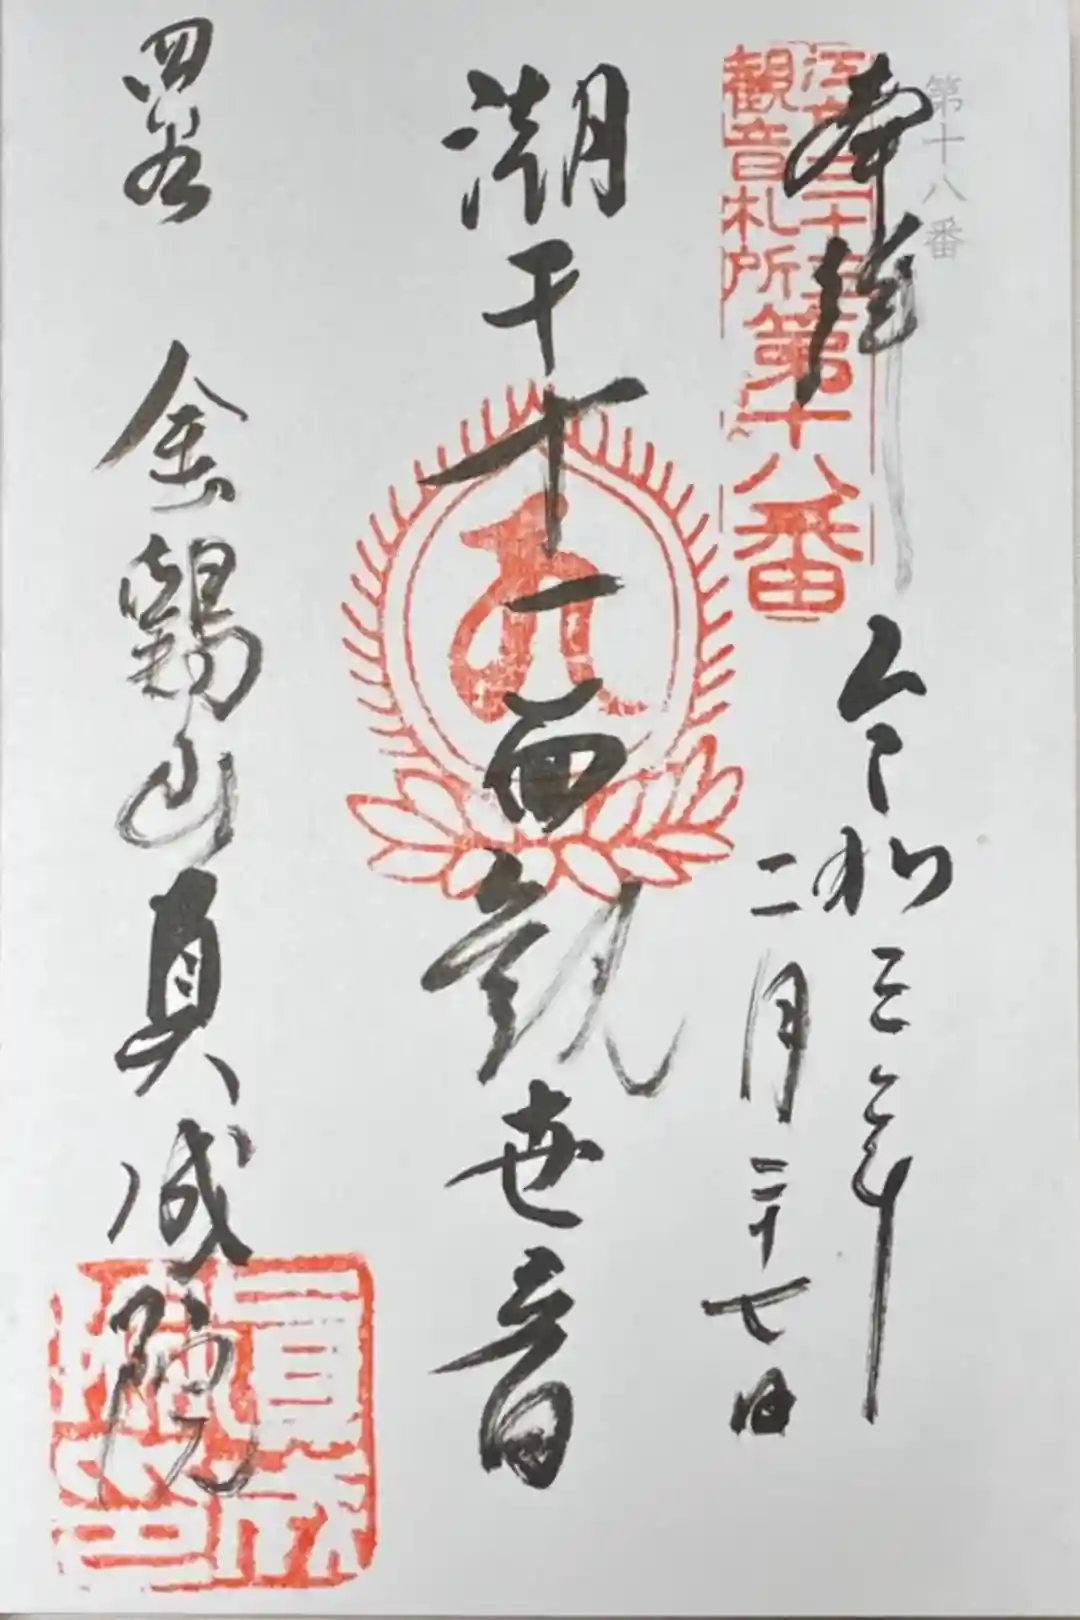 第十八番
奉拝
江戸三十三
観音札所
第十八番
令和三年
二月二十七日
潮干十一面観世音
四谷
金鶏山真成院
真成
院之印